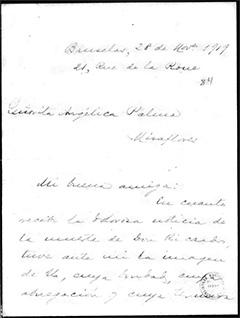 Bruselas, 28 de Novbre 1919
21, Rue de la Roue
Señorita Angélica Palma
Miraflores
Mi buena amiga:
En cuanto
recibí la dolorosa noticia de
la muerte de Don Ricardo,
tuve ante mí la imagen
de Ud, cuya bondad, cuya
abnegación y cuya